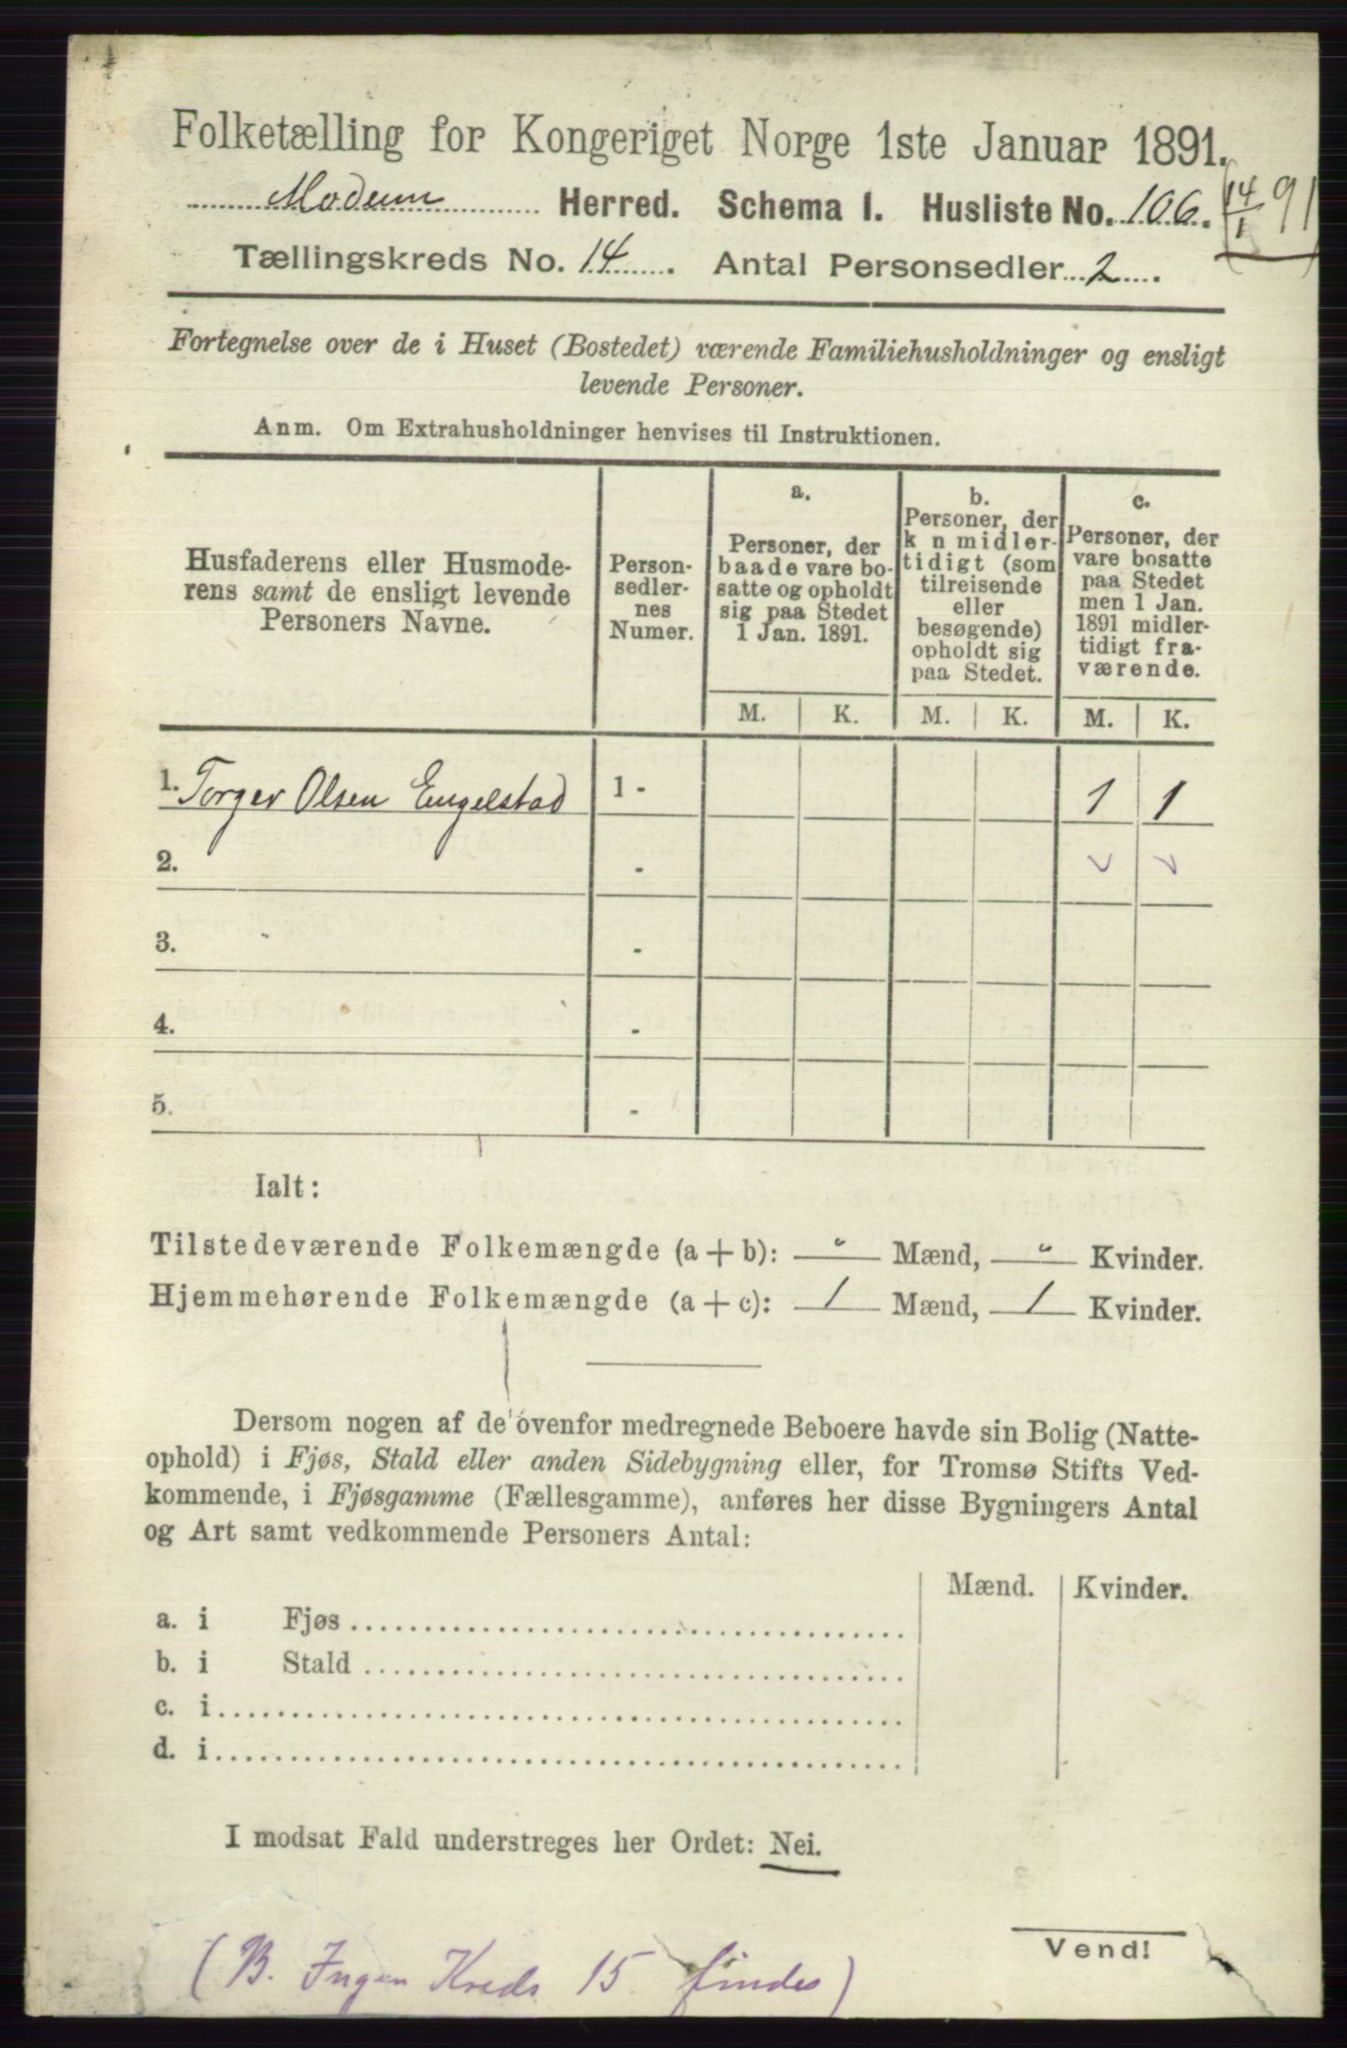 Folketælling for Kongeriget Norge 1ste Januar 1891.
Modum Herred. Schema 1. Husliste No. 106. 14/1 91
Tællingskreds No. 14. Antal Personsedler 2.
Fortegnelse over de i Huset (Bostedet) værende Familiehusholdninger og ensligt
levende Personer.
Anm. Om Extrahusholdninger henvises til Instruktionen.
Husfaderens eller Husmode-
rens samt de ensligt levende
Personers Navne.
Person-
sedler-
nes
Numer.
a.
Personer, der
baade vare bo-
satte og opholdt
sig paa Stedet
1 Jan. 1891.
b.
Personer, der
k n midler-
tidigt (som
tilreisende
eller
besøgende)
opholdt sig
paa Stedet.
c.
Personer, der
vare bosatte
paa Stedet
men 1 Jan.
1891 midler-
tidigt fra-
værende.
M. K. M. K. M. K.
1. Torger Olsen Engelstad 1 - 1 1
2. -
3. -
4. -
5. -
Ialt:
Tilstedeværende Folkemængde (a + b): " Mænd, " Kvinder.
Hjemmehørende Folkemængde (a + c): 1 Mænd, 1 Kvinder.
Dersom nogen af de ovenfor medregnede Beboere havde sin Bolig (Natte-
ophold) i Fjøs, Stald eller anden Sidebygning eller, for Tromsø Stifts Ved-
kommende, i Fjøsgamme (Fællesgamme), anføres her disse Bygningers Antal
og Art samt vedkommende Personers Antal:
Mænd. Kvinder.
a. i Fjøs
b. i Stald
c. i
d. i
I modsat Fald understreges her Ordet: Nei.
Vend!
(B. Ingen Kreds 15 findes)